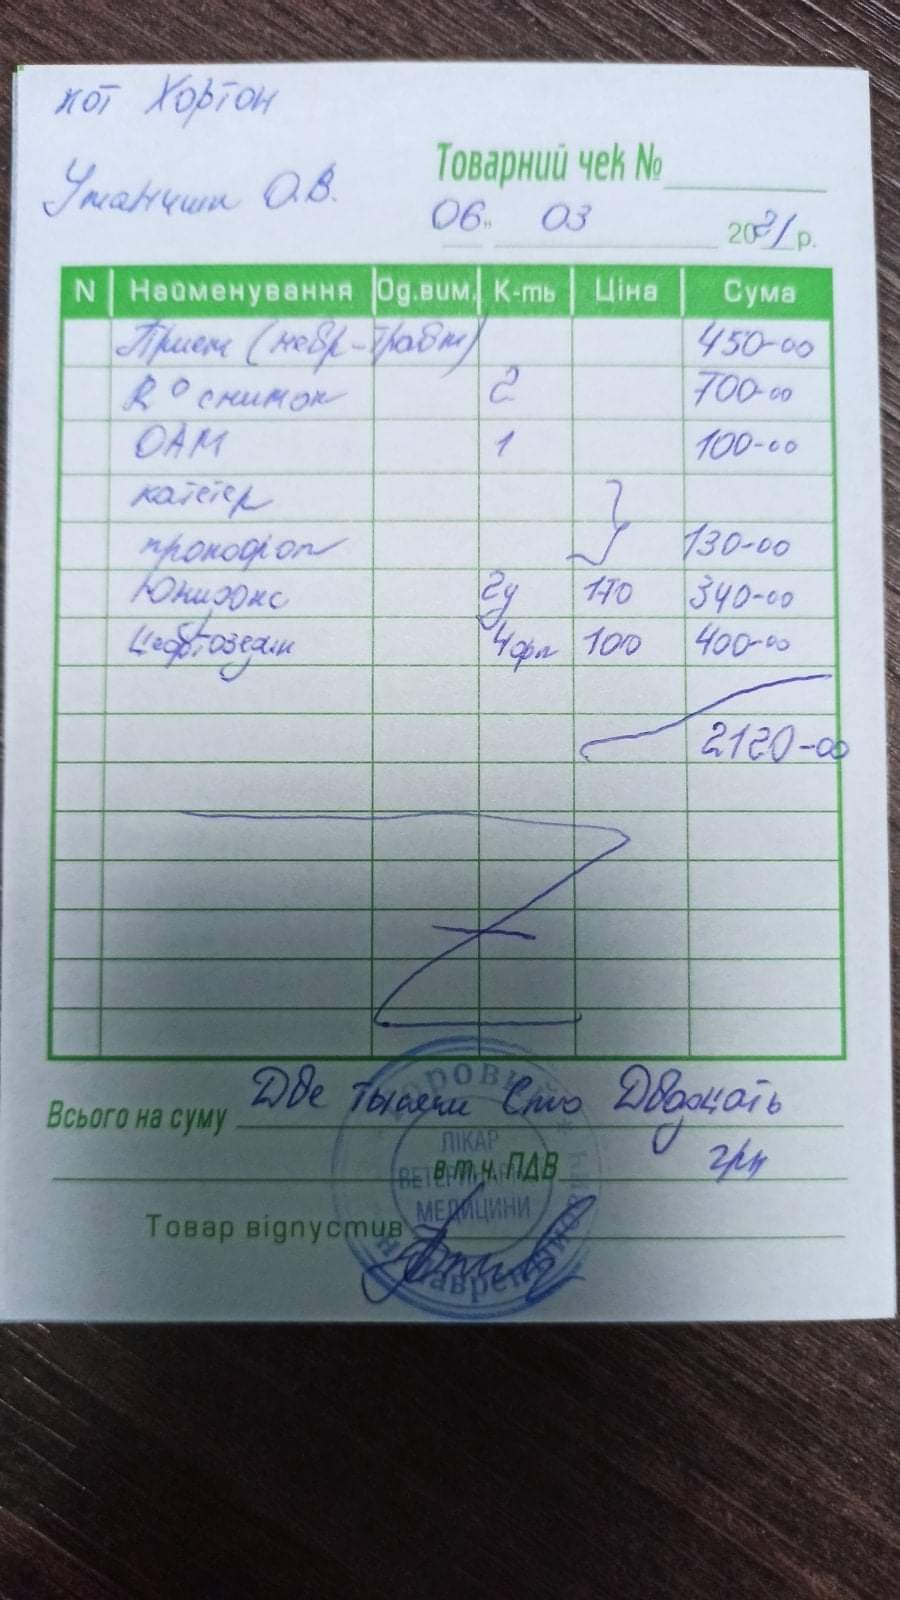 кот Хортон
О.В.
Товарний чек №
06" 03 2021 р.
N Найменування Од.вим. К-ть Ціна Сума
Прием 450-00
R° снимок 2 700-00
ОАМ 1 100-00
катетер
130-00
2 170 340-00
4фл 100 400-00
2120-00
Всього на суму Две тысячи Сто Двадцать
грн
в т.ч. ПДВ
Товар відпустив
ЛІКАР
ВЕТЕРИНАРНОЇ
МЕДИЦИНИ